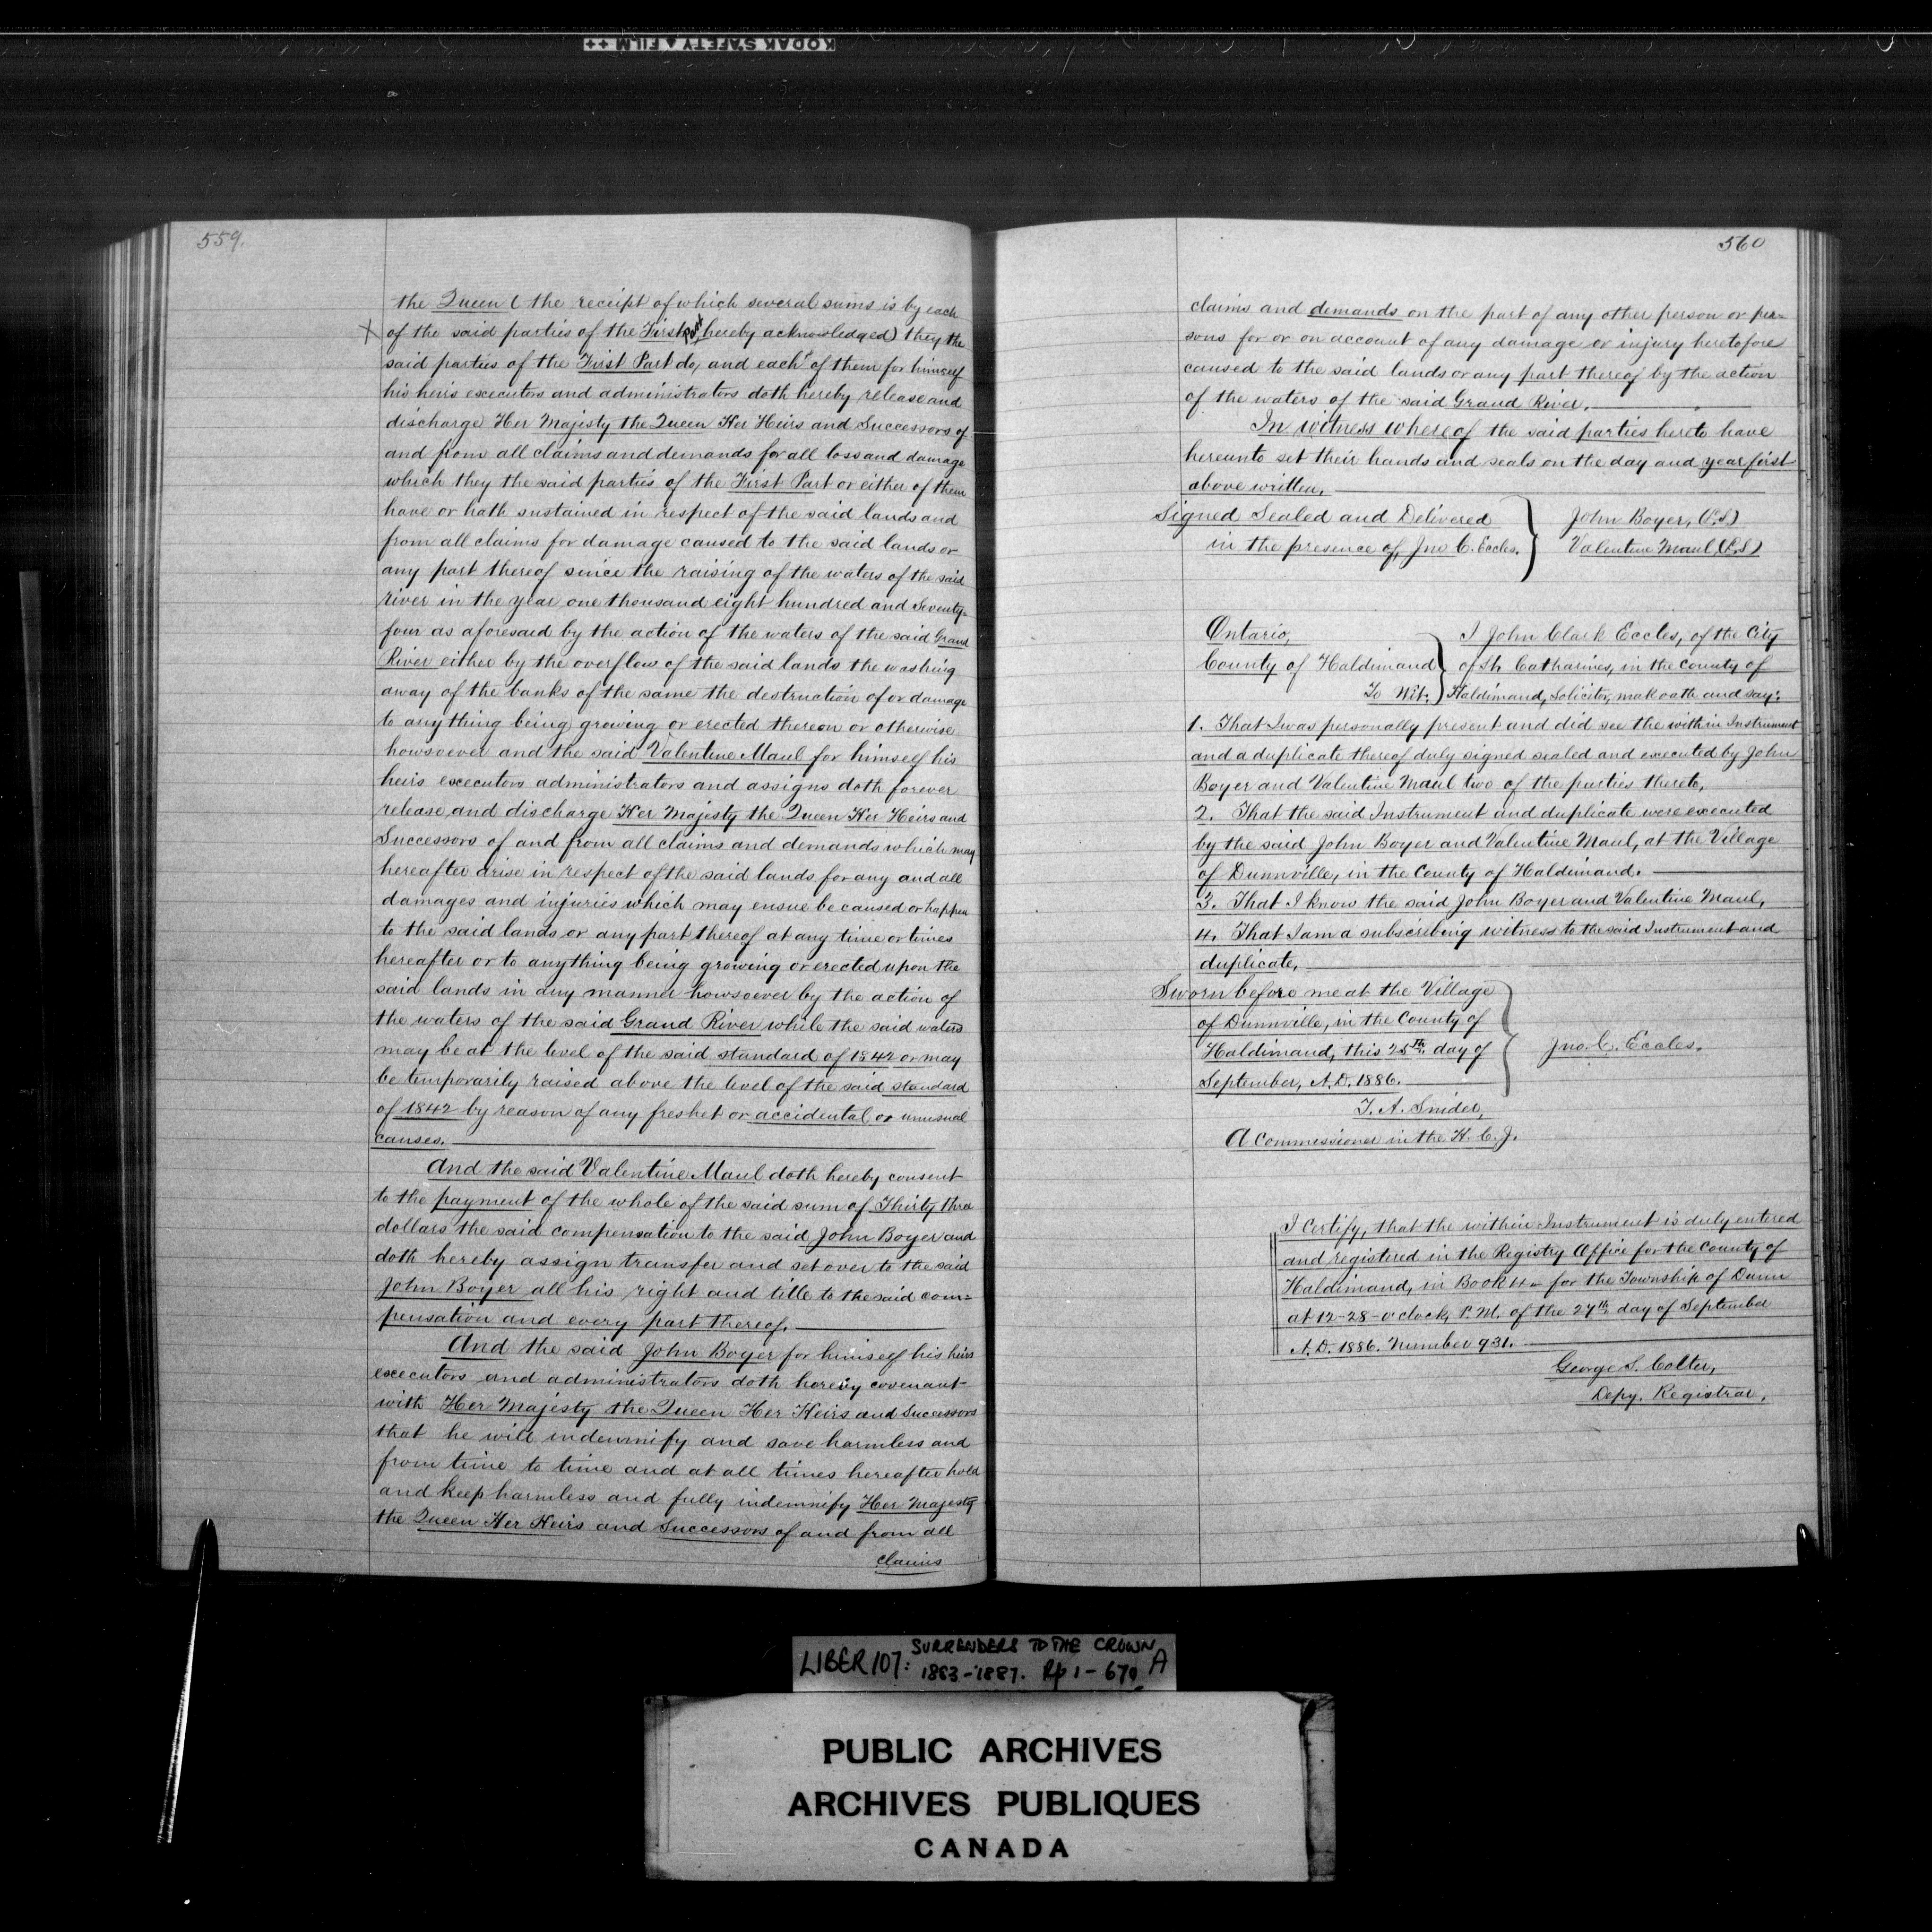 KODAK SAFETY A FILM ++
559.
the Queen (the receipt of which several sums is by each
of the said parties of the First Part hereby acknowledged) they the
said parties of the First Part do, and each of them for himself
his heirs executors and administrators doth hereby release and
discharge Her Majesty the Queen Her Heirs and Successors of
and from all claims and demands for all loss and damage
which they the said parties of the First Part or either of them
have or hath sustained in respect of the said lands and
from all claims for damage caused to the said lands or
any part thereof since the raising of the waters of the said
river in the year one thousand eight hundred and Seventy=
four as aforesaid by the action of the waters of the said Grand
River either by the overflow of the said lands the washing
away of the banks of the same the destruction of or damage
to anything being growing or erected thereon or otherwise
howsoever and the said Valentine Maul for himself his
heirs executors administrators and assigns doth forever
release and discharge Her Majesty the Queen Her Heirs and
Successors of and from all claims and demands which may
hereafter arise in respect of the said lands for any and all
damages and injuries which may ensue be caused or happen
to the said lands or any part thereof at any time or times
hereafter or to anything being growing or erected upon the
said lands in any manner howsoever by the action of
the waters of the said Grand River while the said waters
may be at the level of the said standard of 1842 or may
be temporarily raised above the level of the said standard
of 1842 by reason of any freshet or accidental or unusual
causes.
And the said Valentine Maul doth hereby consent
to the payment of the whole of the said sum of Thirty three
dollars the said compensation to the said John Boyer and
doth hereby assign transfer and set over to the said
John Boyer all his right and title to the said com=
pensation and every part thereof.
And the said John Boyer for himself his heirs
executors and administrators doth hereby covenant
with Her Majesty the Queen Her Heirs and Successors
that he will indemnify and save harmless and
from time to time and at all times hereafter hold
and keep harmless and fully indemnify Her Majesty
the Queen Her Heirs and Successors of and from all
claims
560
claims and demands on the part of any other person or per=
sons for or on account of any damage or injury heretofore
caused to the said lands or any part thereof by the action
of the waters of the said Grand River.
In witness whereof the said parties hereto have
hereunto set their hands and seals on the day and year first
above written.
Signed Sealed and Delivered } John Boyer, (L.S)
in the presence of, Jno C. Eccles. } Valentine Maul (L.S)
Ontario, } I John Clark Eccles, of the City
County of Haldimand } of St. Catharines, in the County of
To Wit: } Haldimand, Solicitor, mak oath and say:
1. That I was personally present and did see the within Instrument
and a duplicate thereof duly signed sealed and executed by John
Boyer and Valentine Maul two of the parties thereto,
2. That the said Instrument and duplicate were executed
by the said John Boyer and Valentine Maul, at the Village
of Dunnville, in the County of Haldimand.
3. That I know the said John Boyer and Valentine Maul,
4. That I am a subscribing witness to the said Instrument and
duplicate,
Sworn before me at the Village
of Dunnville, in the County of
Haldimand, this 25th day of } Jno. C. Eccles.
September, A.D. 1886.
T. A. Snider,
A Commissioner in the H. C. J.
I Certify, that the within Instrument is duly entered
and registered in the Registry Office for the County of
Haldimand, in Book 4 for the Township of Dunn
at 12-28-o'clock, P.M. of the 27th day of September
A.D. 1886. Number 931.
George S. Colter,
Depy. Registrar.
LIBER 107: SURRENDERS TO THE CROWN A
1883-1887. Pp 1-670
PUBLIC ARCHIVES
ARCHIVES PUBLIQUES
CANADA